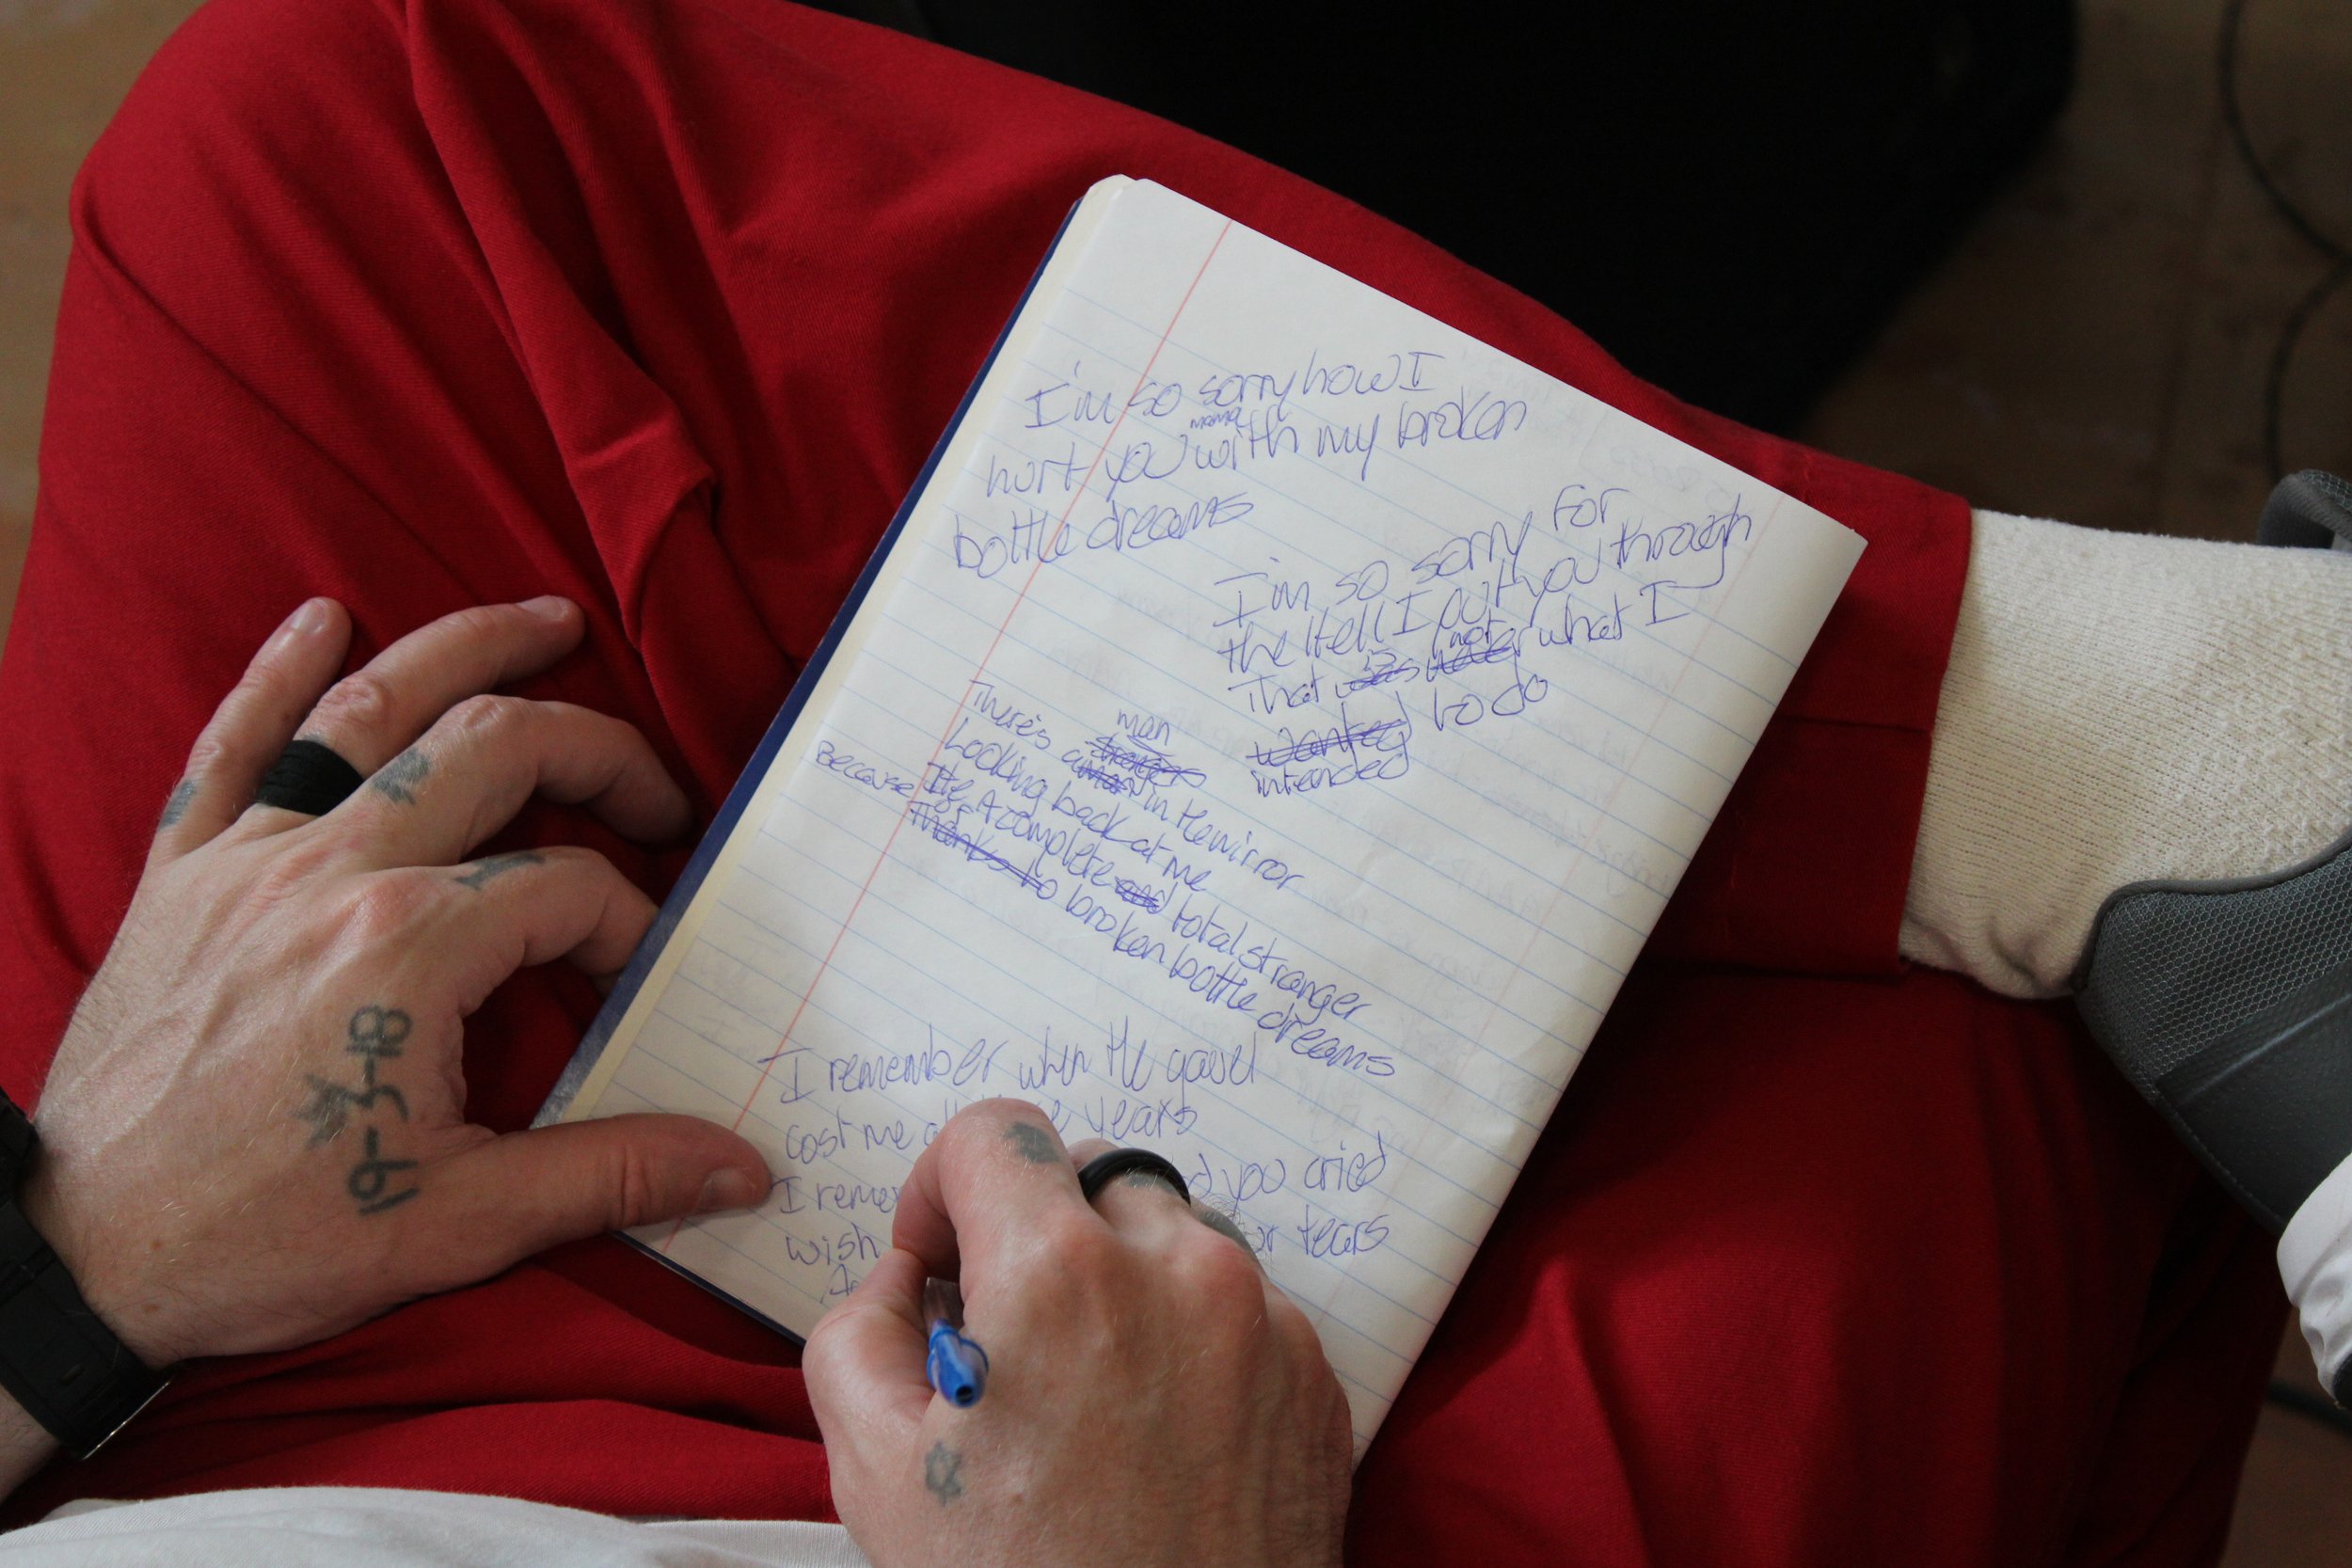 I'm so sorry how I
hurt you mama with my broken
bottle dreams
I'm so sorry for
the Hell I put you through
That is not what I
wanted to do
intended
There's a man in the mirror
Looking back at me
It's A complete and total stranger
Because of Thanks to broken bottle dreams
I remember when the gavel
cost me all years
I remem d you cried
wish or tears
19-3-18